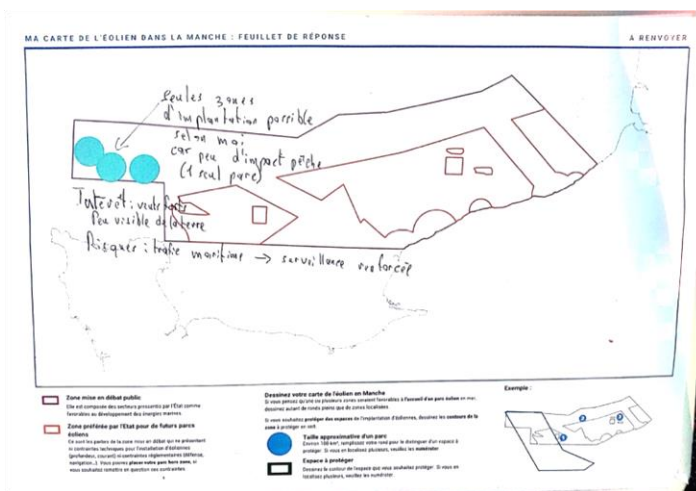 MA CARTE DE L'ÉOLIEN DANS LA MANCHE : FEUILLET DE RÉPONSE
À RENVOYER
seules zones
d'implantation possible
selon moi
car peu d'impact pêche
(1 seul parc)
Intérêt : vents forts
Peu visible de la terre
Risques : trafic maritime → surveillance renforcée
Zone mise en débat public
Elle est composée des secteurs pressentis par l'État comme
favorables au développement des énergies marines.
Zone préférée par l'État pour de futurs parcs
éoliens
Ce sont les parties de la zone mise en débat qui ne présentent
ni contraintes techniques pour l'installation d'éoliennes
(profondeur, courant) ni contraintes réglementaires (défense,
navigation...). Vous pouvez placer votre parc hors zone, si
vous souhaitez remettre en question ces contraintes.
Dessinez votre carte de l'éolien en Manche
Si vous pensez qu'une ou plusieurs zones seraient favorables à l'accueil d'un parc éolien en mer,
dessinez autant de ronds pleins que de zones localisées.
Si vous souhaitez protéger des espaces de l'implantation d'éoliennes, dessinez les contours de la
zone à protéger en vert.
Taille approximative d'un parc
Environ 100 km², remplissez votre rond pour le distinguer d'un espace à
protéger. Si vous en localisez plusieurs, veuillez les numéroter.
Espace à protéger
Dessinez le contour de l'espace que vous souhaitez protéger. Si vous en
localisez plusieurs, veuillez les numéroter.
Exemple :